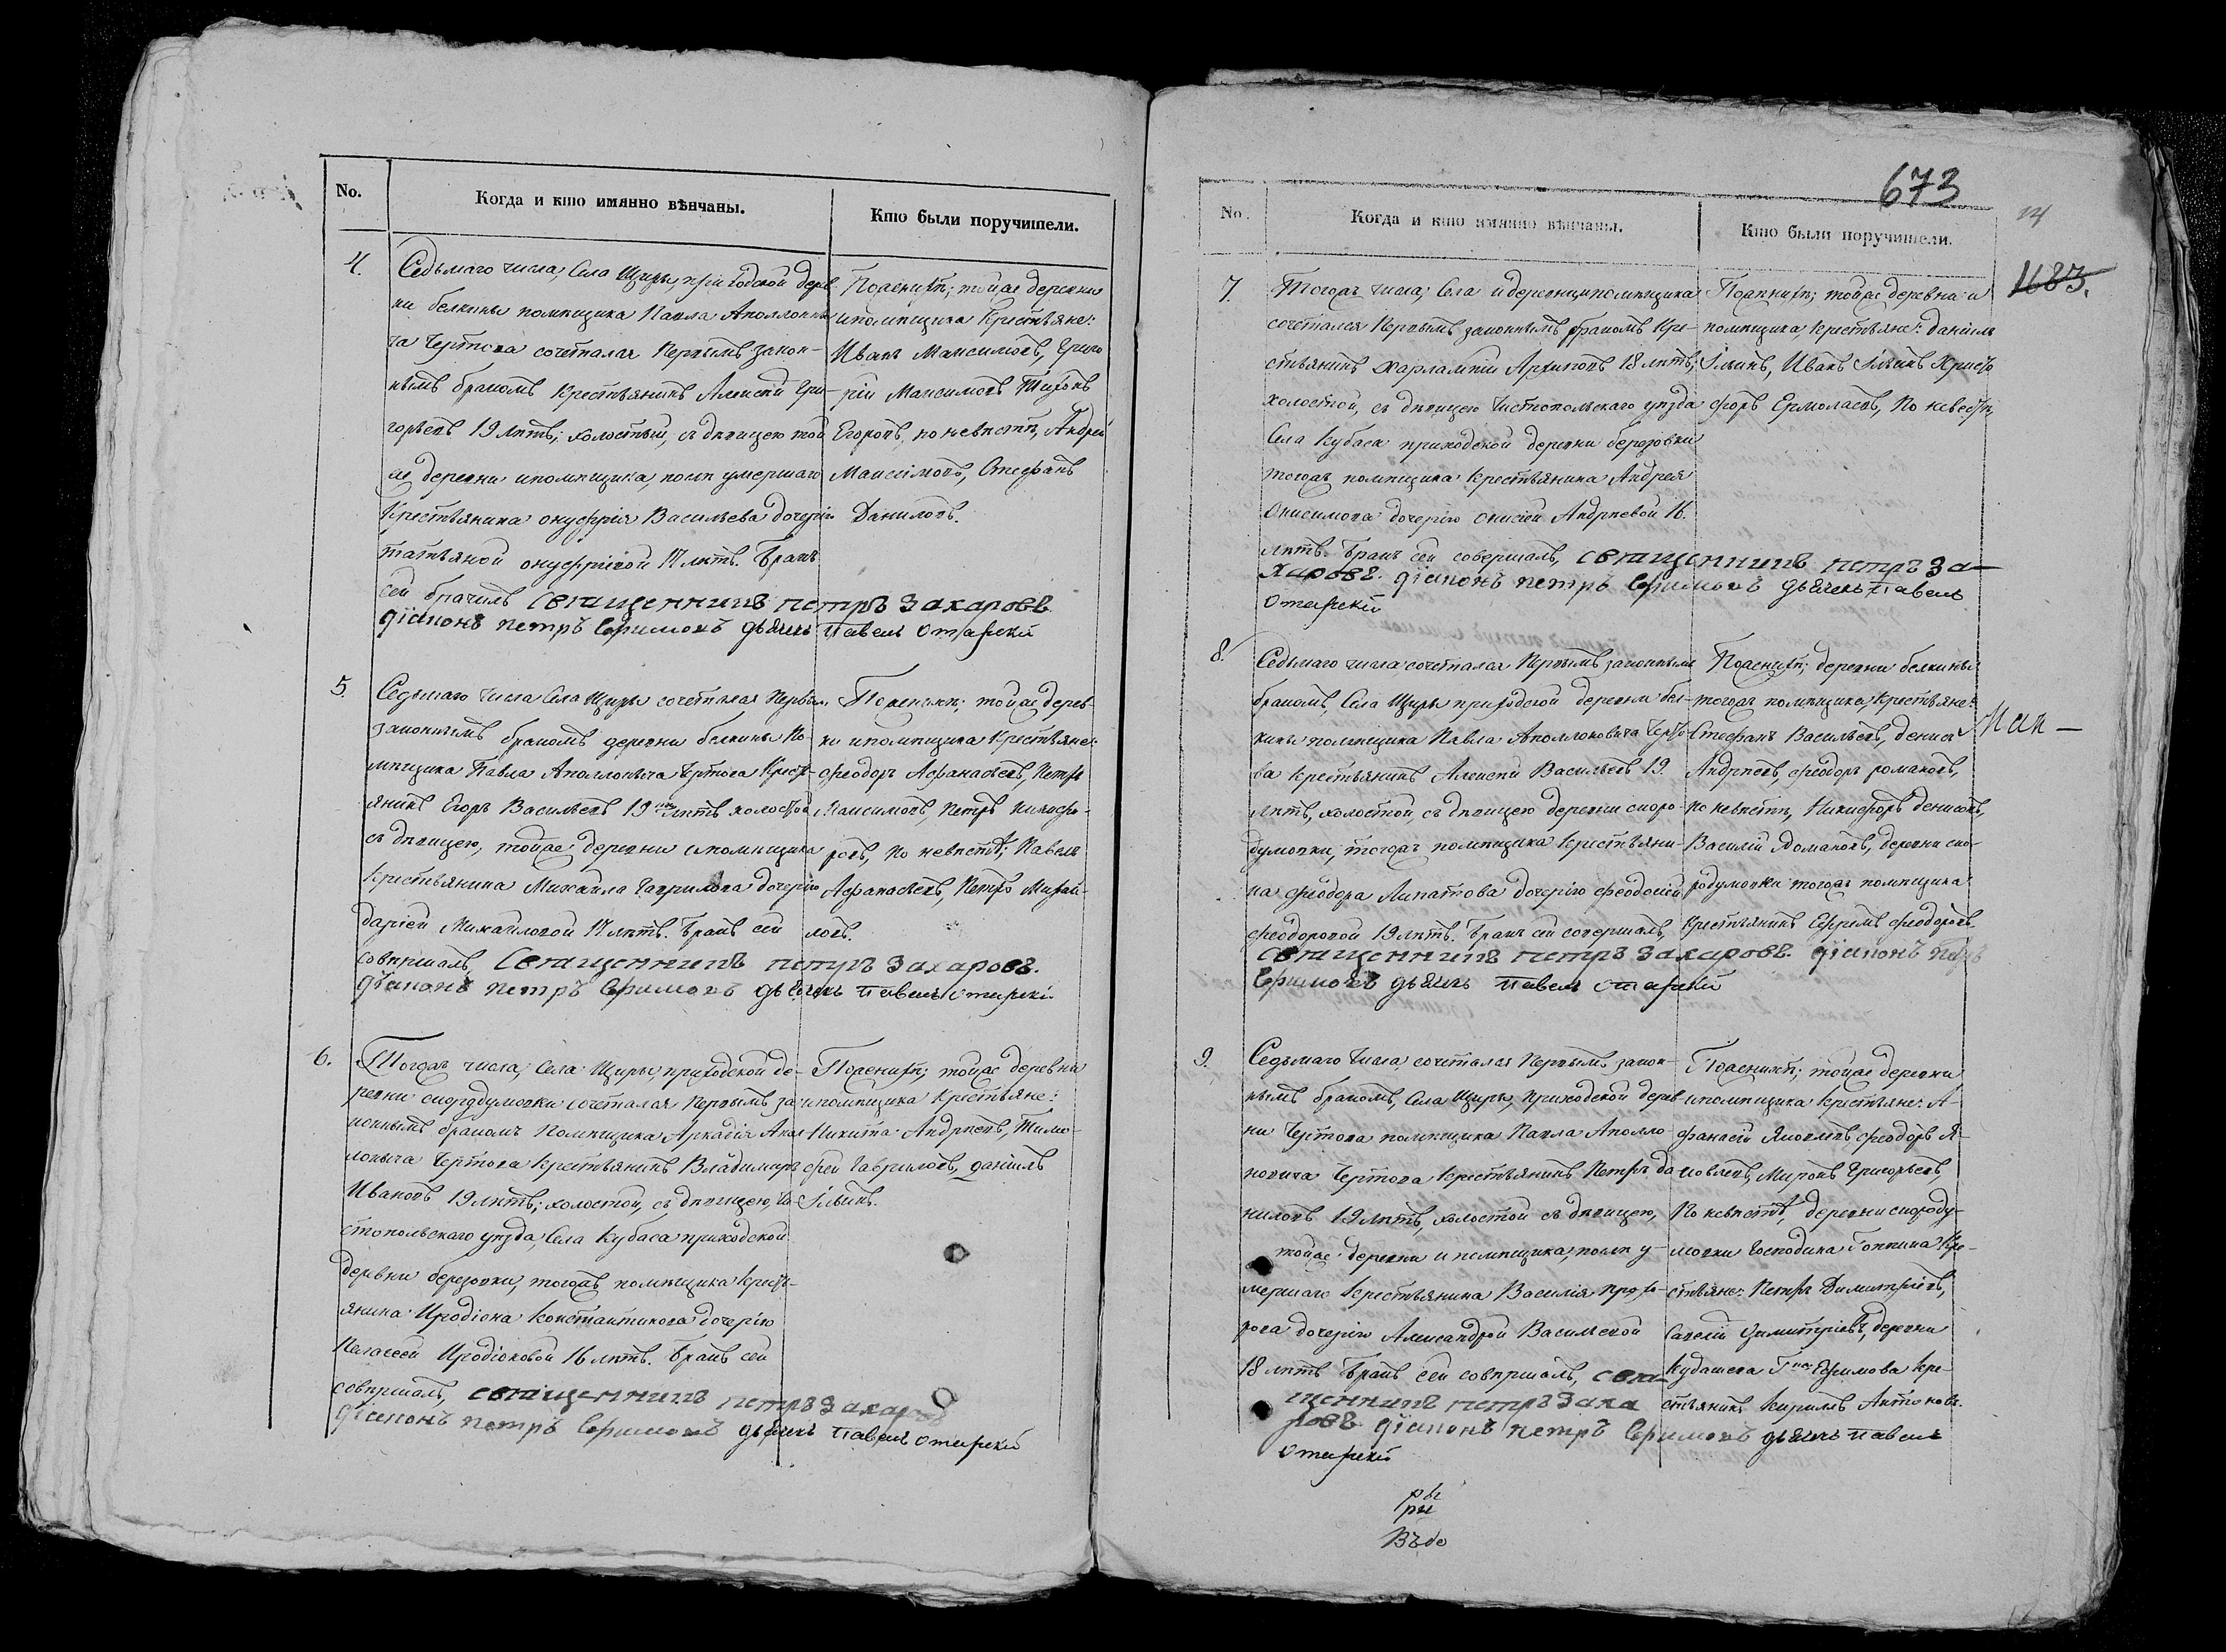 No.
Когда и кто имянно вѣнчаны.
Кто были поручители.
4.
Седьмаго числа, Села Щиры приходской дерев
ни белкины помѣщика Павла Аполлонови
ча Чертова сочетался первымъ закон-
нымъ бракомъ крестьянинъ Алексѣй Гри-
горьевъ 19 лѣтъ, холостый, съ дѣвицею той
же деревни и помѣщика, послѣ умершаго
крестьянина онуфрія Васильева дочерію
татьяной онуфріевой 17 лѣтъ. Бракъ
сей брачилъ священникъ петръ захаровъ
діаконъ петръ Ефимовъ дьячекъ павелъ отарскій
По женихѣ; тойже деревни
и помѣщика Крестьяне:
Иванъ Максимовъ, Григо
рій Максимовъ Тихонъ
Егоровъ, по невѣстѣ, Андрей
Максимовъ, Стефанъ
Даниловъ.
5.
Седьмаго числа Села Щиры сочетался первым
законнымъ бракомъ деревни белкины по-
мѣщика Павла Аполлоныча Чертова Крест-
янинъ Егоръ Васильевъ 19 лѣтъ холостой
съ дѣвицею, тойже деревни и помѣщика
крестьянина Михаила Гаврилова дочерію
дарьей Михайловой 17 лѣтъ. Бракъ сей
совершалъ священникъ петръ захаровъ.
діаконъ петръ Ефимовъ дьячекъ павелъ отарскій
По женихѣ; тойже дерев-
ни и помѣщика Крестьяне:
Феодоръ Афанасьевъ, Петръ
Максимовъ, Петръ Никифо-
ровъ, по невѣстѣ; Павелъ
Афанасьевъ, Петръ Михай-
ловъ.
6.
Тогожъ числа, Села Щиры, приходской де-
ревни скородумовки сочетался первымъ за-
коннымъ бракомъ помѣщика Аркадія Апол
лоныча Чертова крестьянинъ Владимиръ
Ивановъ 19 лѣтъ; холостой, съ дѣвицею, Чи-
стопольскаго уѣзда, Села Кубаса приходской
деревни березовки, тогожъ помѣщика крест-
янина Иродіона Константинова дочерію
Пелагеей Иродіоновой 16 лѣтъ. Бракъ сей
совершалъ, священникъ петръ захаровъ
діаконъ петръ Ефимовъ дьячекъ павелъ отарскій
По женихѣ; тойже деревни
и помѣщика Крестьяне:
Никита Андрѣевъ, Тимо-
фей Гавриловъ, даніилъ
Ильинъ.
673
14
1183.
No.
Когда и кто имянно вѣнчаны.
Кто были поручители.
7.
Тогожъ числа; Села и деревни и помѣщика
сочетался первымъ законнымъ бракомъ Кре-
стьянинъ Харлампій Архиповъ 18 лѣтъ,
холостой, съ дѣвицею Чистопольскаго уѣзда
Села Кубаса приходской деревни березовки
тогожъ помѣщика крестьянина Андрея
Онисимова дочерію онисіей Андрѣевой 16.
лѣтъ. Бракъ сей совершалъ, священникъ петръ за-
харовъ. діаконъ петръ Ефимовъ дьячекъ павелъ
отарскій
По женихѣ; тойже деревни и
помѣщика, крестьяне: даніилъ
Ильинъ, Иванъ Ильинъ Христо
форъ Ермолаевъ, По невестѣ,
8.
Седьмаго числа сочетался первымъ законнымъ
бракомъ, Села Щиры приходской деревни бел-
кины помѣщика Павла Аполлоновича Черто
ва крестьянинъ Алексѣй Васильевъ 19.
лѣтъ, холостой, съ дѣвицею деревни скоро-
думовки, тогожъ помѣщика крестьяни-
на феодора Липатова дочерію феодосіей
феодоровой 19 лѣтъ. Бракъ сей совершалъ,
священникъ петръ захаровъ. діаконъ петръ
Ефимовъ дьячекъ павелъ отарскій
По женихѣ; деревни белкины
тогожъ помѣщика, Крестьяне:
Стефанъ Васильевъ, денисъ
Андрѣевъ, феодоръ романовъ,
по невѣстѣ, Никифоръ денисовъ,
Василій Романовъ, деревни ско-
родумовки тогожъ помѣщика
Крестьянинъ Ефремъ феодоровъ
9.
Седьмаго числа, сочетался первымъ закон-
нымъ бракомъ, Села Щиры, приходской дерев
ни Чертова помѣщика Павла Аполло-
новича Чертова крестьянинъ Петръ да
ниловъ 19 лѣтъ, холостой съ дѣвицею,
тойже деревни и помѣщика, послѣ у-
мершаго крестьянина Василія прохо-
рова дочерію Александрой Васильевой
18 лѣтъ Бракъ сей совершалъ, свя-
щенникъ петръ заха
ровъ діаконъ петръ Ефимовъ дьячекъ павелъ
отарскій
По женихѣ; тойже деревни
и помѣщика крестьяне: А-
фанасій Яковлевъ феодоръ Я-
ковлевъ, Миронъ Григорьевъ,
По невѣстѣ, деревни скороду-
мовки Господина Кре-
стьяне: Петръ Димитріевъ,
Савелій Димитріевъ, деревни
Кудашева Ефимова кре-
стьянинъ Кирилъ Антоновъ.
ры
ры
Въдо